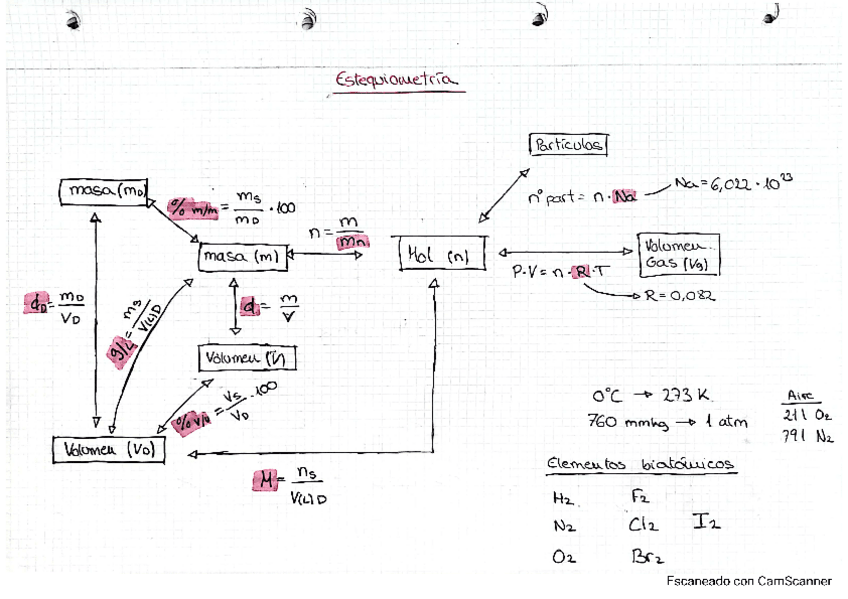 Estequiometría
Partículas
masa (mD)
% m/m = mS / mD · 100
nº part = n · Na
Na = 6,022 · 10²³
n = m / mn
masa (m)
Mol (n)
Volumen
Gas (Vg)
P·V = n·R·T
R = 0,082
dD = mD / VD
g/L = mS / V(L)D
d = m / V
Volumen (V)
% V/V = VS / VD · 100
Volumen (VD)
M = nS / V(L)D
0ºC → 273 K
760 mmHg → 1 atm
Aire
21 l O₂
79 l N₂
Elementos biatómicos
H₂ F₂
N₂ Cl₂ I₂
O₂ Br₂
Escaneado con CamScanner